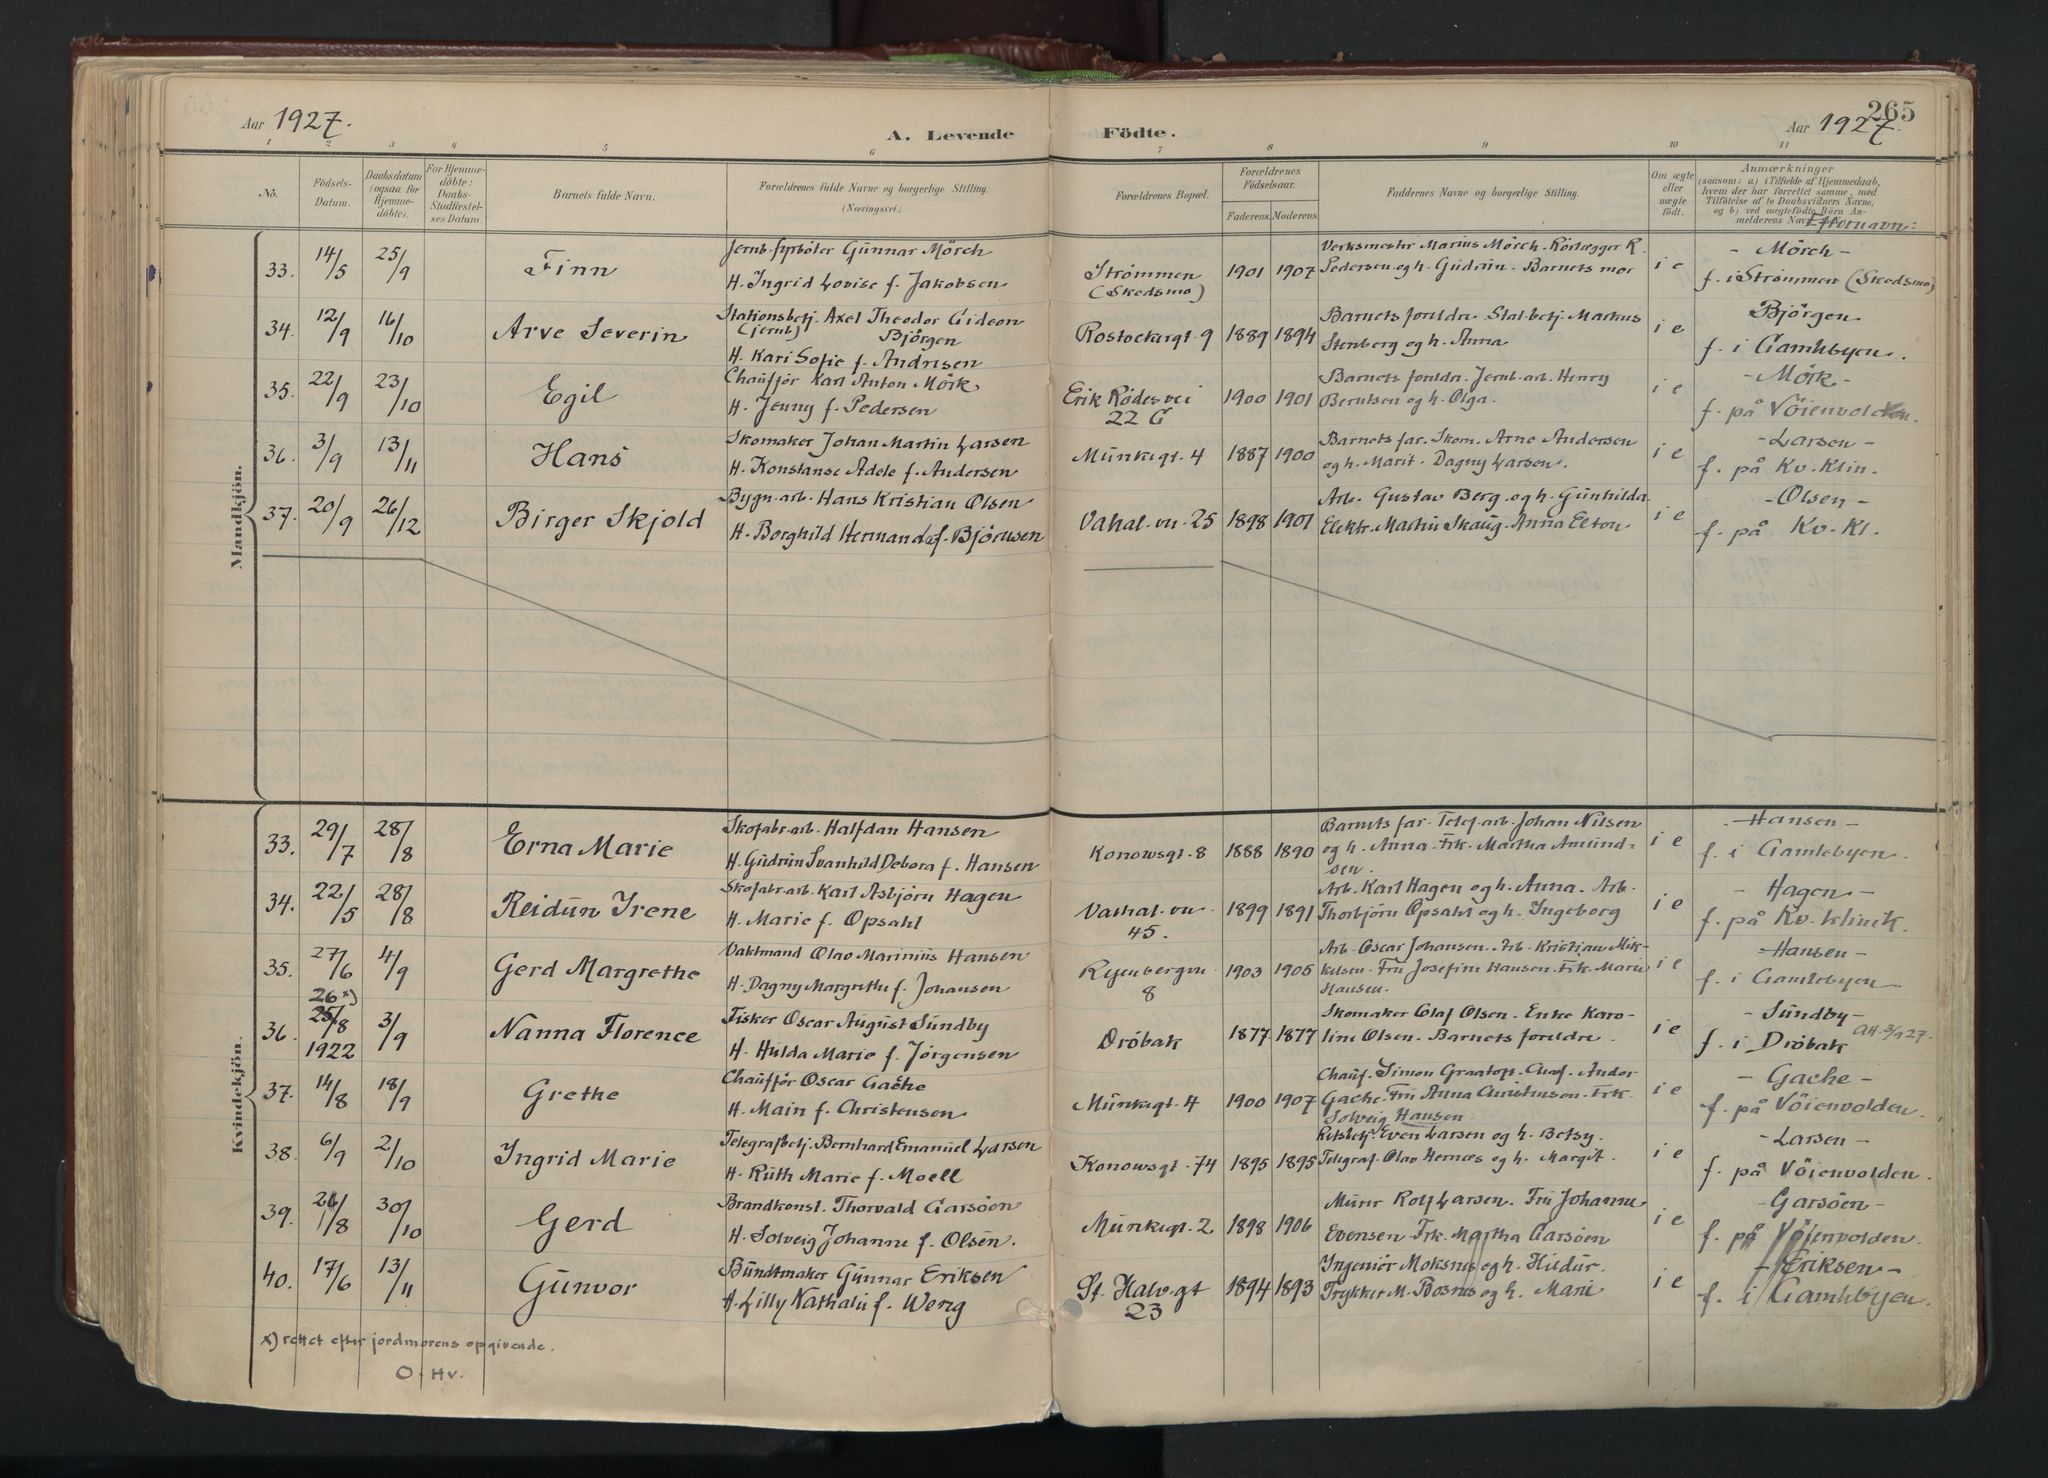 265
Aar 1927.
A. Levende Födte.
Aar 1927.
1 2 3 4 5 6 7 8 9 10 11
No. Födsels-Datum. Daabsdatum (ogsaa for Hjemme-döbte). For Hjemme-döbte: Daabs-Stadfæstel-ses Datum. Barnets fulde Navn. Forældrenes fulde Navne og borgerlige Stilling. (Næringsvei.) Forældrenes Bopæl. Forældrenes Födselsaar. Faderens. Moderens. Faddernes Navne og borgerlige Stilling. Om ægte eller uægte födt. Anmærkninger
(saasom: a) i Tilfælde af Hjemmedaab, hvem der har forrettet samme, med Tilföielse af to Daabsvidners Navne, og b) ved uægtefödte Börn An-melderens Navn
Efternavn:
Mandkjön.
33. 14/5 25/9 Finn Jernb.fyrböter Gunnar Mörch
H. Ingrid Lovise f. Jakobsen Strömmen (Skedsmo) 1901 1907 Verksmester Marius Mörch. Rörlægger R.
Pedersen og h. Gudrun. Barnets mor i e - Mörch -
f. i Strömmen (Skedsmo)
34. 12/9 16/10 Arve Severin Stationsbetj. (jernb.) Axel Theodor Gideon Björgen
H. Kari Sofie f. Andresen Rostockergt. 9 1889 1894 Barnets foreldre. Stat.betj. Markus
Stenberg og h. Anna i e Björgen
f. i Gamlebyen.
35. 22/9 23/10 Egil Chaufför Karl Anton Mörk
H. Jenny f. Pedersen Erik Rödesvei 22 C 1900 1901 Barnets foreldr. Jernb.arb. Henry
Berntsen og h. Olga. i e - Mörk -
f. på Vöienvolden.
36. 3/9 13/11 Hans Skomaker Johan Martin Larsen
H. Konstanse Adele f. Andersen Munkegt. 4 1887 1900 Barnets far. Skom. Arne Andersen
og h. Marit. Dagny Larsen. i e - Larsen -
f. på Kv. Klin.
37. 20/9 26/12 Birger Skjold Bygn.arb. Hans Kristian Olsen
H. Borghild Hermande f. Björnsen Vahal.vn. 25 1898 1901 Arb. Gustav Berg og h. Gunhilda
Elektr. Martin Skaug. Anna Elton i e - Olsen -
f. på Kv. Kl.
Kvindekjön.
33. 29/7 28/8 Erna Marie Skofabr.arb. Halfdan Hansen
H. Gudrun Svanhild Debora f. Hansen Konowsgt. 8 1888 1890 Barnets far. Telef.arb. Johan Nilsen
og h. Anna. Frk. Martha Amund-
sen. i e - Hansen -
f. i Gamlebyen.
34. 22/5 28/8 Reidun Irene Skofabr.arb. Karl Asbjörn Hagen
H. Marie f. Opsahl Vahal.vn. 45. 1899 1891 Arb. Karl Hagen og h. Anna. Arb.
Thorbjörn Opsahl og h. Ingeborg i e - Hagen -
f. på Kv. klinik.
35. 27/6 4/9 Gerd Margrethe Vaktmand Olav Marinius Hansen
H. Dagny Margrethe f. Johansen Ryenbergvn 8 1903 1905 Arb. Oscar Johansen. Arb. Kristian Mik-
kelsen. Fru Josefine Hansen. Frk. Marie
Hansen. i e - Hansen -
f. i Gamlebyen
36. 26 x) 25/8 1922 3/9 Nanna Florence Fisker Oscar August Sundby
H. Hulda Marie f. Jörgensen Dröbak 1877 1877 Skomaker Olaf Olsen. Enke Karo-
line Olsen. Barnets foreldre. i e - Sundby -
f. i Dröbak Att. 3/9 27.
37. 14/8 18/9 Grethe Chaufför Oscar Gache
H. Main f. Christensen Munkegt. 4 1900 1907 Chauf. Simon Graatop. Chauf. Andor
Gache. Fru Anna Christensen. Frk.
Solveig Hansen. i e - Gache -
f. på Vöienvolden.
38. 6/9 2/10 Ingrid Marie Telegrafbetj. Bernhard Emanuel Larsen
H. Ruth Marie f. Moell Konowsgt. 74 1895 1895 Retsbetj. Even Larsen og h. Betsy.
Telegraf. Olav Hernes og h. Margit. i e - Larsen -
f. på Vöienvolden.
39. /8 30/10 Gerd Brandkonst. Thorvald Garsöen
H. Solveig Johanne f. Olsen. Munkegt. 2 1898 1906 Murer Rolf Larsen. Fru Johanne
Evensen. Frk. Martha Garsöen i e - Garsöen -
f. på Vöienvolden.
40. 17/6 13/11 Gunvor Bundtmaker Gunnar Eriksen
H. Lilly Nathalie f. Weng St. Halv.gt 23 1894 1893 Ingeniör Moksnes og h. Hudur.
Trykker M. Bosnes og h. Marie i e - Eriksen -
f. i Gamlebyen.
x) rettet efter jordmorens opgivende.
O. Hv.